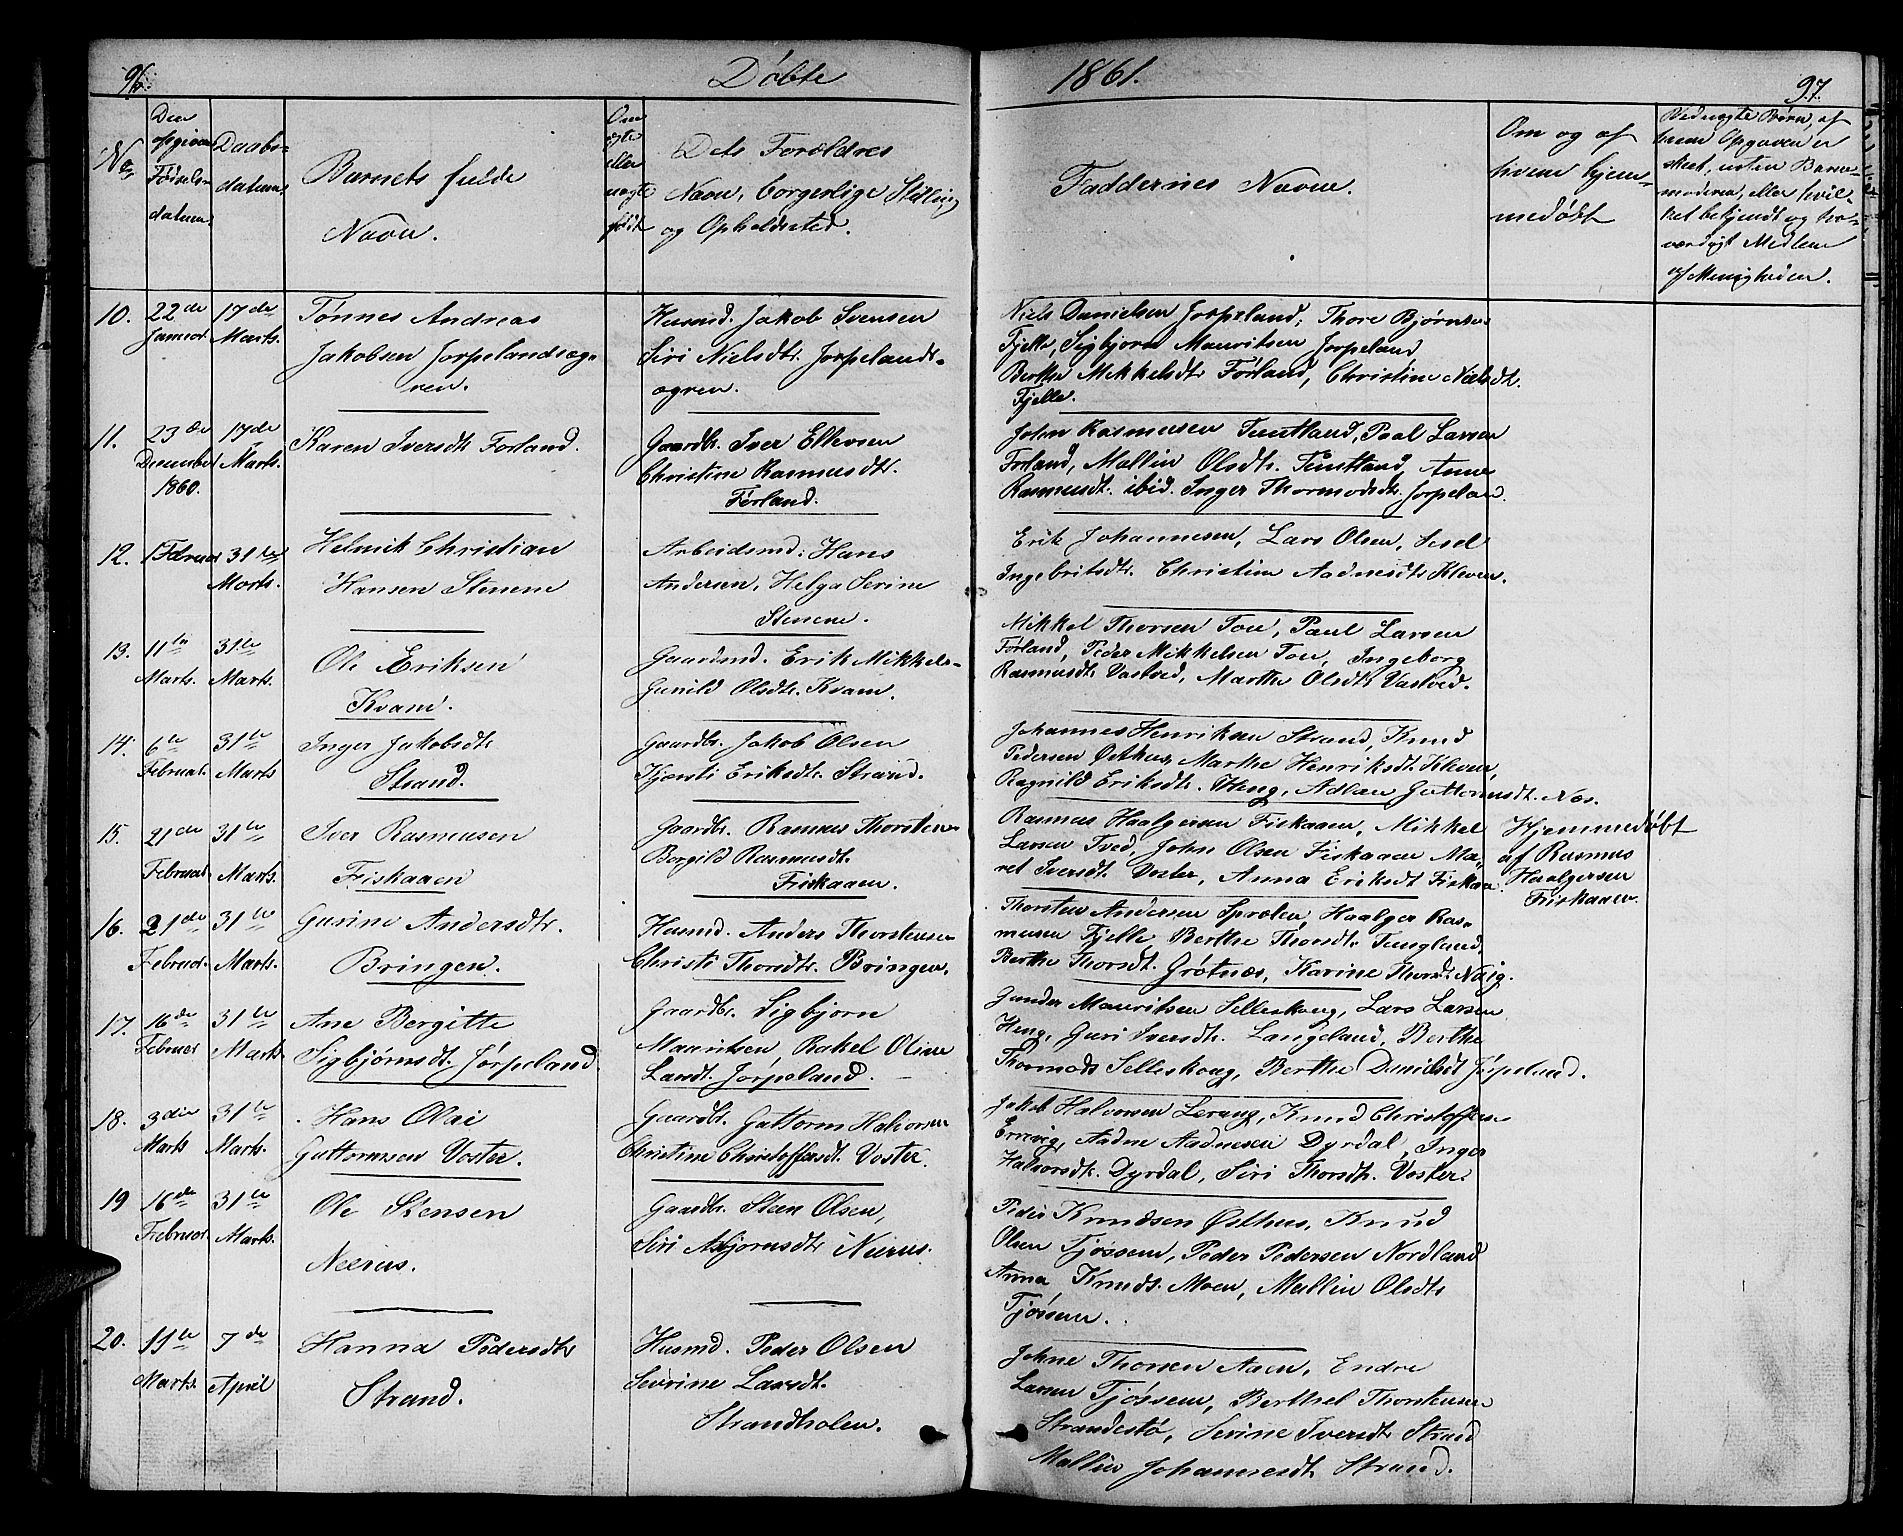 96.
Døbte
1861.
97.
No
Den opgivne Fødsels-datum.
Daabs-datum.
Barnets fulde Navn.
Om ægte eller uægte født.
Dets Forældres Navn, borgerlige Stilling og Opholdssted.
Faddernes Navne.
Om og af hvem hjem-medøbt
Ved uægte Børn, af hvem Opgaven er skeet, enten Barne-moderen, eller hvil-ket bekjendt og tro-værdigt Medlem af Menigheden.
10. 22de Januar. 17de Marts.
Tønnes Andreas
Jakobsen Jørpelandsog-
ren.
Husmd. Jakob Svensen
Siri Nielsdtr. Jørpelands-
ogren.
Niels Danielsen Jørpeland, Thore Bjørnsen
Fjelle, Sigbjørn Mauritsen Jørpeland
Berthe Mikkelsdtr Førland, Christine Nielsdt.
Fjelle.
11. 23de December 1860. 17de Marts.
Karen Iversdtr Førland.
Gaardbr. Iver Ellevsen
Christine Rasmusdtr.
Førland.
John Rasmussen Tuntland, Paal Larsen
Førland, Mallin Olsdtr. Tuntland, Anne
Rasmusdt. ibid. Inger Thormodsdt. Jørpeland.
12. 1 Februar 31te Marts.
Helmik Christian
Hansen Stenene
Arbeidsmd: Hans
Andersen, Helga Serine
Stenene.
Erik Johannesen, Lars Olsen, Sesel
Ingebritsdtr. Christine Aadnesdtr Kleven.
13. 11te Marts. 31te Marts.
Ole Eriksen
Kvam.
Gaardmd. Erik Mikkels-
Gunild Olsdtr. Kvam.
Mikkel Thorsen Tou, Paul Larsen
Førland, Peder Mikkelsen Tou, Ingeborg
Rasmusdtr Vostved, Marthe Olsdtr Vastved.
14. 6te Februar. 31te Marts.
Inger Jakobsdtr
Strand.
Gaardbr. Jakob Olsen
Kjersti Eriksdtr. Strand.
Johannes Henriksen Strand, Knud
Pedersen Østhus, Marthe Henriksdt. Kleven,
Ragnild Eriksdtr. Heng, Adlau Guttormsdt. Nes.
15. 21de Februar. 31te Marts.
Iver Rasmussen
Fiskaaen
Gaardbr. Rasmus Thorsten-
Borgild Rasmusdt.
Friskaaen.
Rasmus Haalgersen Fiskaaen, Mikkel
Larsen Tved, John Olsen Fiskaaen Ma-
ret Iversdt. Voster, Anna Eriksdt Fiskaa
Hjemmedøbt
af Rasmus
Haalgersen
Friskaaen.
16. 21de Februar. 31te Marts.
Gurine Andersdtr.
Bringen.
Husmd. Anders Thorstensen
Christi Thorsdtr. Bringen.
Thorsten Andersen Sprølen, Haalger Ras-
mussen Fjelle, Berthe Thorsdt. Tungland,
Berthe Thorsdt. Grøtnæs, Karine Thorsdt. Naig.
17. 16de Februar 31te Marts.
Ane Bergitte
Sigbjørnsdt. Jørpeland.
Gaardbr. Sigbjørn
Mauritsen, Rakel Oline
Landt. Jørpeland.
Gunder Mauritsen Selleskoug, Lars Larsen
Heng, Guri Iversdt. Langeland, Berthe
Thormods Selleskoug, Berthe Danielsdt Jørpeland.
18. 3die Marts 31te Marts.
Hans Olai
Guttormsen Voster.
Gaardbr. Guttorm Halvorsen
Christine Christoffersdt. Voster.
Jakob Halvorsen Lerang, Knud Christoffersen
Errevig, Aadne Aadnesen Dyrdal, Inger
Halvorsdt. Dyrdal, Siri Thorsdtr. Voster.
19 16de Februar. 31te Marts.
Ole Stensen
Neerus.
Gaardbr. Steen Olsen,
Siri Asbjørnsdtr Neerus.
Peder Knudsen Østhus, Knud
Olsen Tjøssem, Peder Pedersen Nordland
Anna Knudsdt. Moen, Mallin Olsdtr
Tjøssem.
20. 11te Marts. 7de April
Hanna Pedersdtr
Strand.
Husmd. Peder Olsen
Severine Larsdt.
Strandholen.
Johne Thorsen Aaen, Endre
Larsen Tjøssem, Berthel Thorstensen
Strandestø, Serine Iversdtr Strand
Mallin Johannesdt. Strand.